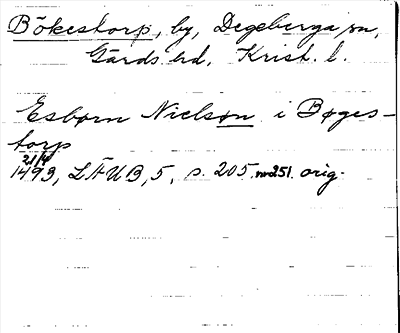 Bökestorp, by, Degeberga sn,
Gärds hd, Krist. l.
Esbørn Nielsøn i Bøges-
torp
21/4
1493, LÄUB, 5, s. 205. nr 251. orig.